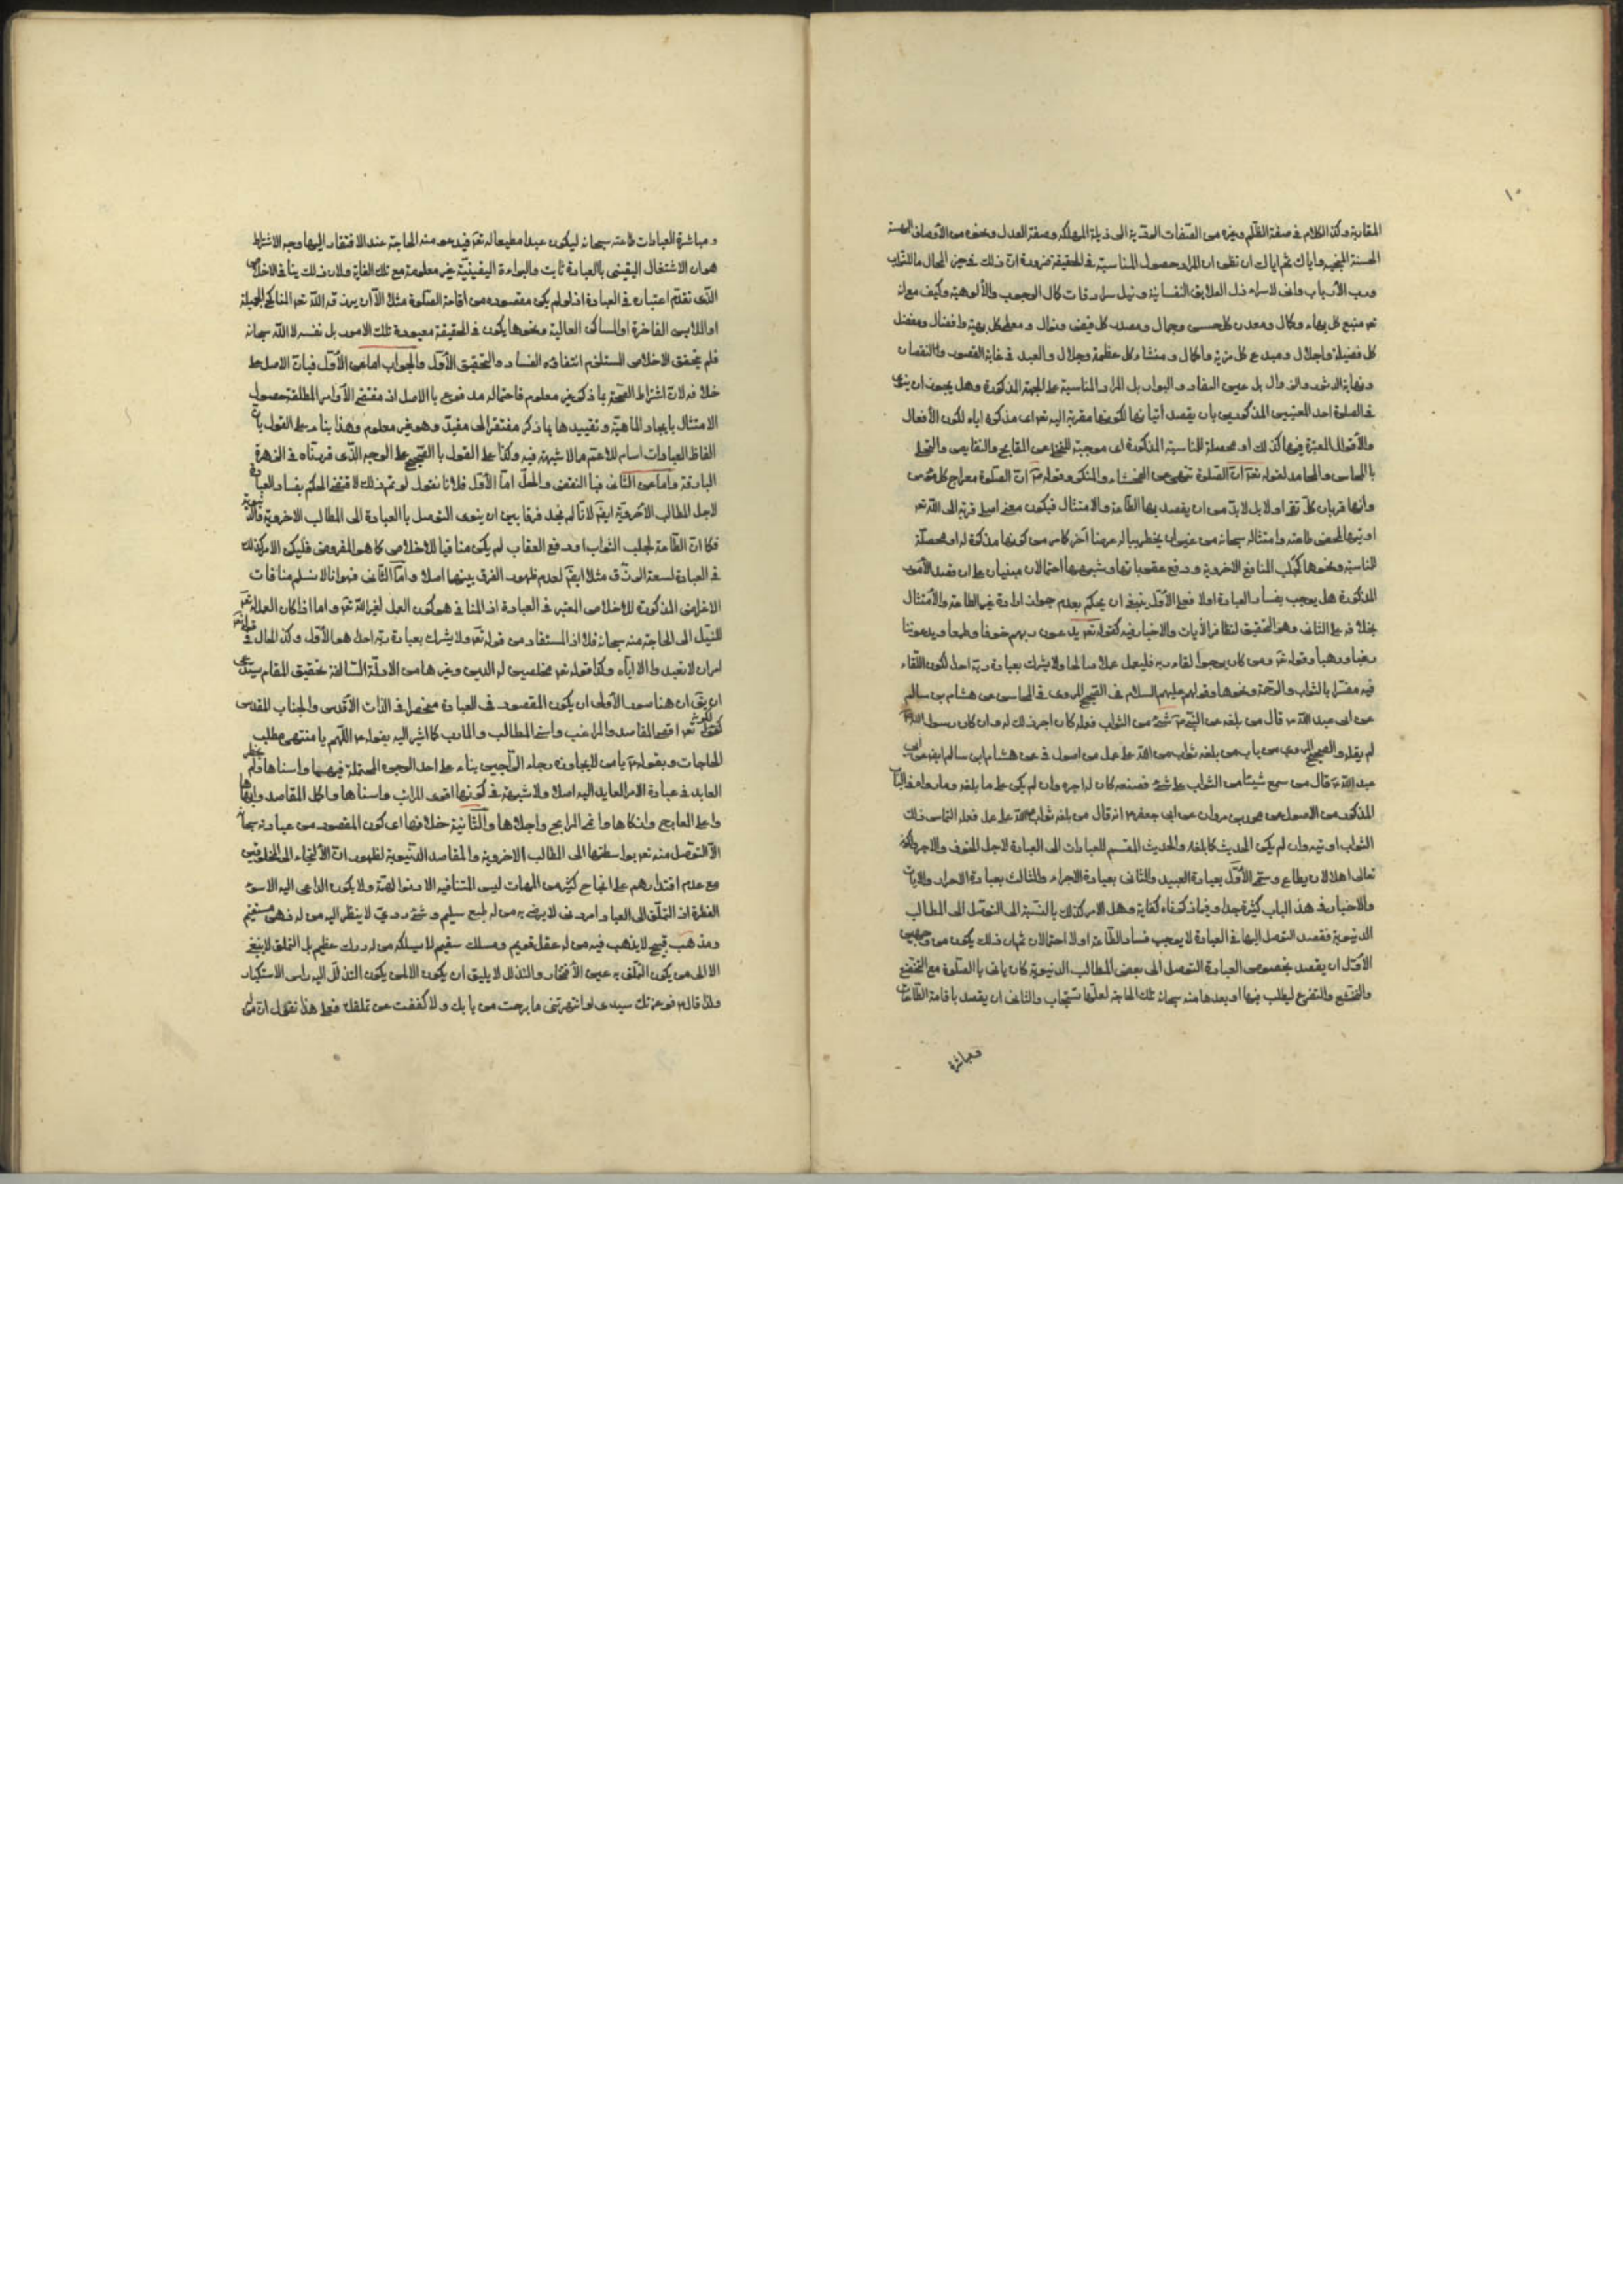 ١٠
المقاربة وكذا الكلام في صفة الظلم وغيره من الصفات المؤدية الى رذيلة المهلكه وصفة العدل ونحوه من الأوصاف
الحسنة المنجية واياك ثم اياك ان تظن ان المراد حصول المناسبة في الحقيقة ضرورة ان ذلك في حيز المحال ما للتراب
ورب الأرباب وانى لاسراء ذل العلايق النفسانية ونيل سرادقات كمال الوجوب والألوهية وكيف مع انه
تعر منبع كل بهاء وكمال ومعدن كل حسن وجمال ومصدر كل فيض ونوال ومعطى كل بهية وافضال ومفضل
كل فضيلة واجلال ومبدع كل مزية واكمال ومنشاء كل عظمة وجلال والعبد في غاية القصور والنقصان
ونهاية الدثور والزوال بل عين النفاد والبوار بل المراد المناسبة على الجهة المذكورة وهل يجوز ان ينوى
في الصلوة احد المعنيين المذكورين بان يقصد اتيانها لكونها مقربة اليه تعر اى مذكرة اياه لكون الأفعال
والأقوال المعتبرة فيها كذلك او محصلة للمناسبة المذكورة اى موجبة للتخلى عن القبايح والنقايص والتحلى
بالمحاسن والمحامد لقوله تعر ان الصلوة تنهى عن الفحشاء والمنكر وقوله ان الصلوة معراج كل مؤمن
وانها قربان كل تقى اولا بل لابد من ان يقصد بها الطاعة والامتثال فيكون معنى اصلى قربة الى الله تعر
او بتها لمحض طاعته وامتثاله سبحانه من غير ان يخطر بباله عرضا آخر كا من كونها مذكرة له او محصلة
للمناسبة ونحوها كجلب المنافع الاخروية ودفع عقوباتها وشبهها احتمالان مبنيان على ان قصد الأمور
المذكورة هل يوجب بفساد العبادة اولا فعلى الأول ينبغى ان يحكم بعدم جواز ارادة غير الطاعة والامتثال
بخلافه على الثانى وهو التحقيق لتظافر الآيات والاخبار فيه كقوله تعر يدعون ربهم خوفا وطمعا ويدعوننا
رغبا ورهبا وقوله تعر ومن كان يرجوا لقاء ربه فليعمل عملا صالحا ولا يشرك بعبادة ربه احدا لكون اللقاء
فيه مفسرا بالثواب والرحمة ونحوها وقولهم عليهم السلام في الصحيح المروى في المحاسن عن هشام بن سالم
عن ابى عبد الله ع قال من بلغه عن النبى ص شئ من الثواب فعمله كان اجر ذلك له وان كان رسول الله ص
لم يقله والصحيح المروى من باب من بلغه ثواب من الله على عمل من اصول في عن هشام بن سالم ايضا عن ابى
عبد الله ع قال من سمع شيئا من الثواب على شئ فصنعه كان له اجره وان لم يكن على ما بلغه وما رواه في الباب
المذكور من الاصول عن محمد بن مروان عن ابى جعفر ع انه قال من بلغه ثواب من الله على عمل فعمله التماس ذلك
الثواب اوتيه وان لم يكن الحديث كما بلغه والحديث المقسم للعبادات الى العبادة لاجل الخوف والاجر وكونه
تعالى اهلا لان يطاع وسمى الأول بعبادة العبيد والثانى بعبادة الاجراء والثالث بعبادة الاحرار والآيات
والاخبار في هذا الباب كثيرة جدا وفيما ذكرناه كفاية وهل الامر كذلك بالنسبة الى التوصل الى المطالب
الدنيوية فقصد التوصل اليها في العبادة لا يوجب فساد الطاعة اولا احتمالان ثم ان ذلك يكون من وجهين
الأول ان يقصد بخصوص العبادة التوصل الى بعض المطالب الدنيوية كان ياتى بالصلوة مع التخضع
والتخشع والتضرع ليطلب فيها او بعدها منه سبحانه تلك الحاجة لعلها تستجاب والثانى ان يقصد باقامة الطاعات
ومباشرة
ومباشرة العبادات طاعته سبحانه ليكون عبدا مطيعا له تعر فيدعو منه الحاجة عند الافتقار اليها وجه الاشتراط
هو ان الاشتغال اليقينى بالعبادة ثابت والبراءة اليقينية غير معلومة مع تلك الغاية ولان ذلك ينافى الاخلاص
الذى تقدم اعتباره في العبادة اذ لو لم يكن مقصوده من اقامة الصلوة مثلا الا ان يرزقه الله تعر المناكح الجميلة
او الملابس الفاخرة او المساكن العالية ونحوها يكون في الحقيقة معبوده تلك الامور بل نفسه لا الله سبحانه
فلم يتحقق الاخلاص المستلزم انتفاؤه الفساد والتحقيق الأول والجواب اما عن الأول فبان الاصل على
خلافه لان اشتراط الصحة بما ذكر غير معلوم فاحتماله مدفوع بالاصل اذ مقتضى الأوامر المطلقة حصول
الامتثال بايجاد الماهية وتقييدها بما ذكر مفتقر الى مقيد وهو غير معلوم وهذا بناء على القول بان
الفاظ العبادات اسام للاعم مما لا شبهة فيه وكذا على القول بالصحيح على الوجه الذى قررناه في الزهرة
البارقة واما عن الثانى فبالنقض والحل اما الأول فلانا نقول لو تم ذلك لاقتضى الحكم بفساد العبادة
لاجل المطالب الأخروية ايضا لانا لم نجد فرقا بين ان ينوى التوصل بالعبادة الى المطالب الاخروية والدنيوية
فكما ان الطاعة لجلب الثواب او دفع العقاب لم يكن منافيا للاخلاص كما هو المفروض فليكن الامر كذلك
في العبادة لسعة الرزق مثلا ايضا لعدم ظهور الفرق بينهما اصلا واما الثانى فهو انا لا نسلم منافات
الاغراض المذكورة للاخلاص المعتبر في العبادة اذ المنافى هو كون العمل لغير الله تعر واما اذا كان العمل له تعر
للنيل الى الحاجة منه سبحانه فلا اذ المستفاد من قوله تعر ولا يشرك بعبادة ربه احدا هو الأول وكذا الحال في قوله تعر
امر ان لا تعبدوا الا اياه وكذا قوله تعر مخلصين له الدين وغيرها من الادلة السالفة تحقيق المقام يستدعى
ان يق ان هنا صور الأولى ان يكون المقصود في العبادة منحصرا في الذات الأقدس والجناب المقدس
لكونه تعر اقصى المقاصد والمراغب واسنى المطالب والمآرب كما اشير اليه بقوله ع اللهم يا منتهى مطلب
الحاجات وبقوله ع يا من لا يجاوزه رجاء الراجين بناء على احد الوجوه المحتملة فيهما واسناها فلم يخطر
العابد في عبادة الامر العايد اليه اصلا ولا شبهة في كونها اقوى المراتب واسناها واكمل المقاصد وابهاها
واعلى المعارج وازكاها وانجح المرابح واجلاها والثانية خلافها اى كون المقصود من عبادته سبحانه
الا التوصل منه تعر بواسطتها الى المطالب الاخروية والمقاصد الدنيوية لظهور ان الألتجاء الى المخلوقين
مع عدم اقتدارهم على انجاح كثير من المهمات ليس
الفطرة اذ التملق الى العباد امر دنى لا يرضى به من له طبع سليم وشئ ردى لا ينظر اليه من له فهم مستقيم
ومذهب قبيح لا يذهب فيه من له عقل قويم ومسلك سقيم لا يسلكه من له درك عظيم بل التملق لا ينبغى
الا الى من يكون التملق به عين الأفتخار والتذلل لا يليق ان يكون الا لمن يكون التذلل اليه راس الاستكبار
ولذا قال ع فوعزتك سيدى لو انتهرتنى ما برحت من بابك ولا كففت عن تملقك فعلى هذا نقول ان من